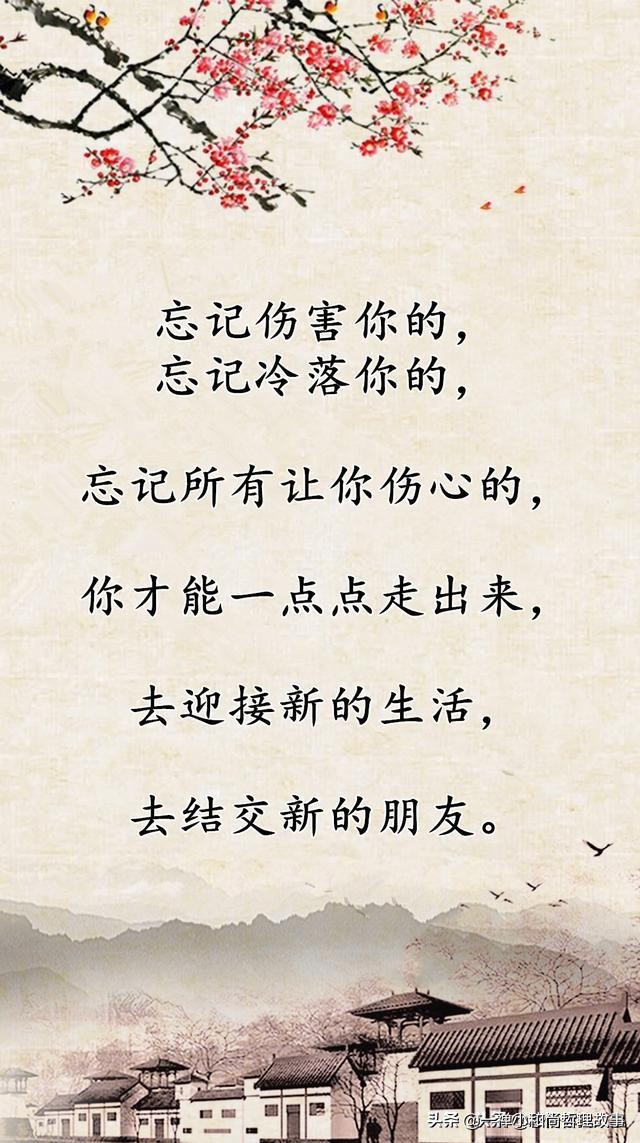 忘记伤害你的，
忘记冷落你的，
忘记所有让你伤心的，
你才能一点点走出来，
去迎接新的生活，
去结交新的朋友。
头条 @一禅小和尚哲理故事